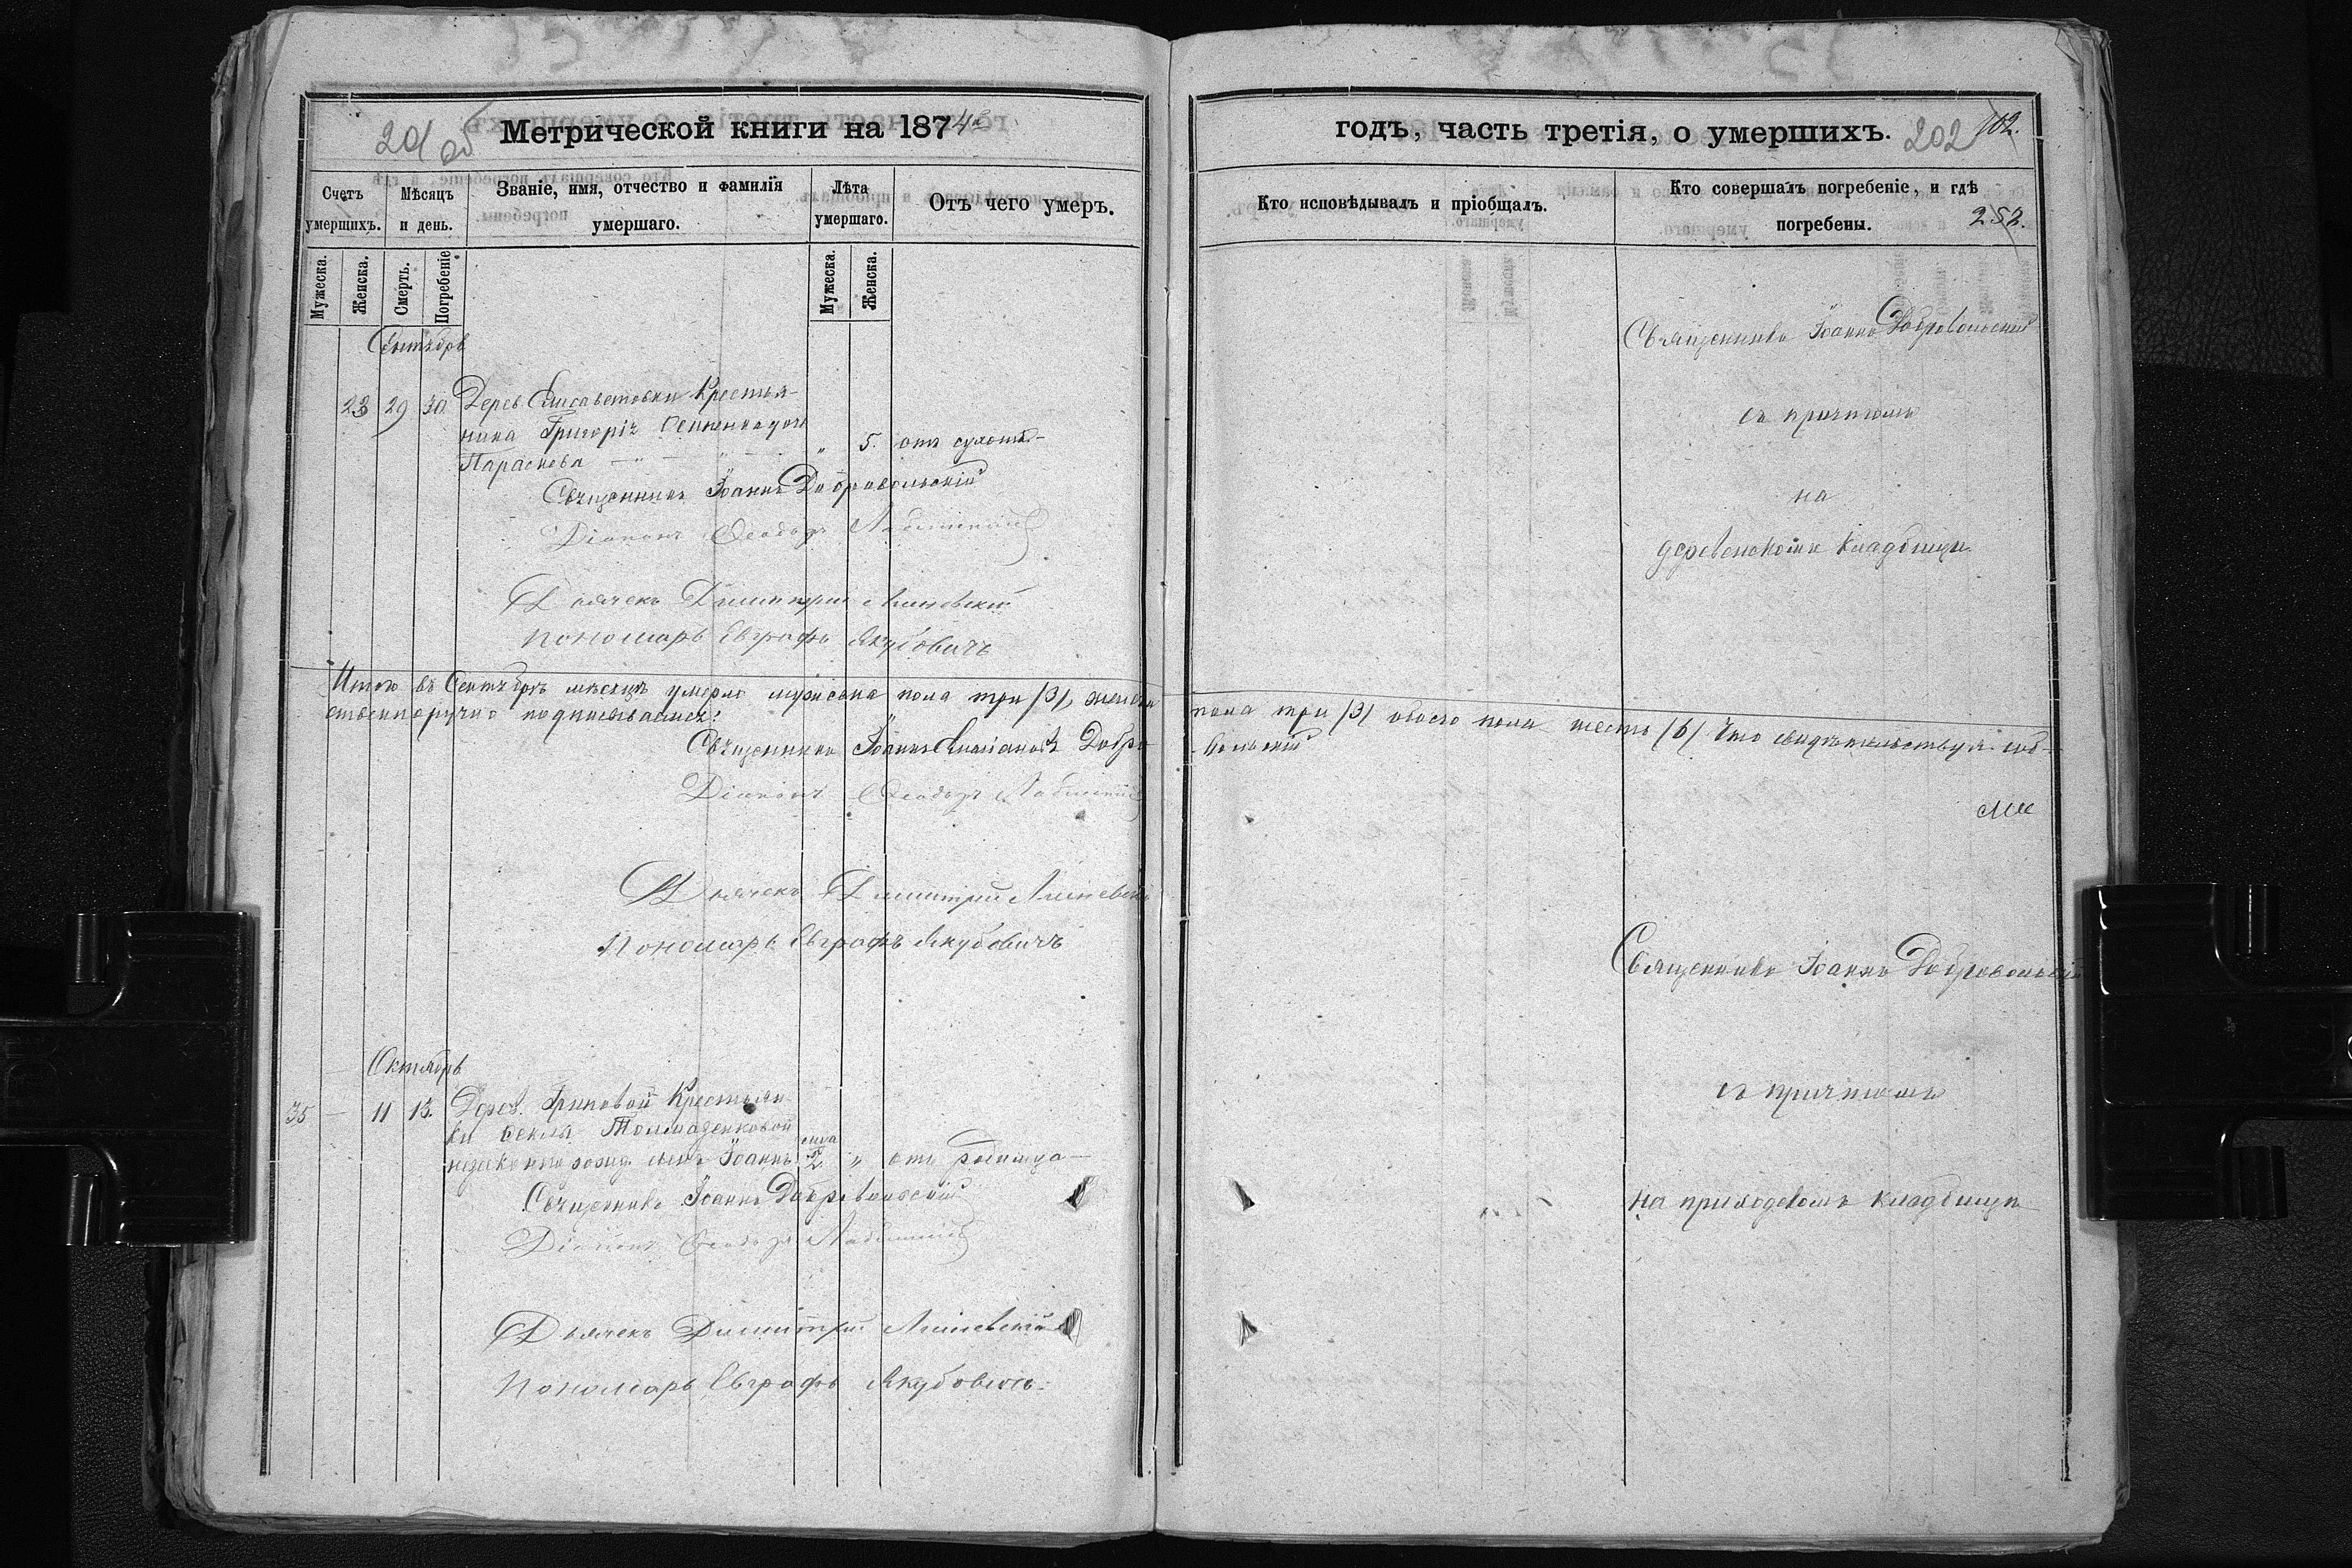 Метрической книги на 1874
Счетъ умершихъ.
Мѣсяцъ и день.
Званіе, имя, отчество и фамилія умершаго.
Лѣта умершаго.
Отъ чего умеръ.
Мужеска.
Женска.
Смерть.
Погребеніе
Мужеска.
Женска.
Сентябрь
23 29 30. Дерев. Елисаветовки Крестья-
нина Григорія дочь
Параскева " 5. отъ
Священникъ Іоаннъ Добровольскій
Діаконъ Ѳеодоръ
Дьячекъ Димитрій Линевскій
Пономарь Евграфъ Якубовичъ
Итого въ Сентябрѣ мѣсяцѣ умерло мужеска пола три /3/, женска
ственноручно подписываемся:
Священникъ Іоаннъ Добро
Діаконъ Ѳеодоръ
Дьячекъ Димитрій Линевскій
Пономарь Евграфъ Якубовичъ
Октябрь
35 – 11 13. Дерев. Крестьян-
ки Ѳеклы
сынъ Іоаннъ 2 " отъ родимца
Священникъ Іоаннъ Добровольскій
Діаконъ Ѳеодоръ
Дьячекъ Димитрій Линевскій
Пономарь Евграфъ Якубовичъ
годъ, часть третія, о умершихъ. 202 102.
Кто исповѣдывалъ и пріобщалъ.
Кто совершалъ погребеніе, и гдѣ
погребены. 252.
Священникъ Іоаннъ Добровольскій
съ причтомъ
на
деревенскомъ кладбищѣ
пола три /3/ обоего пола шесть /6/ Что свидѣтельствуя соб-
вольскій
Священникъ Іоаннъ Добровольскій
съ причтомъ
на приходскомъ кладбищѣ